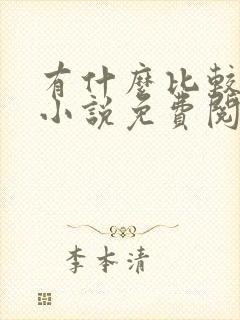 有什麼比較
小說免費閱
李本清